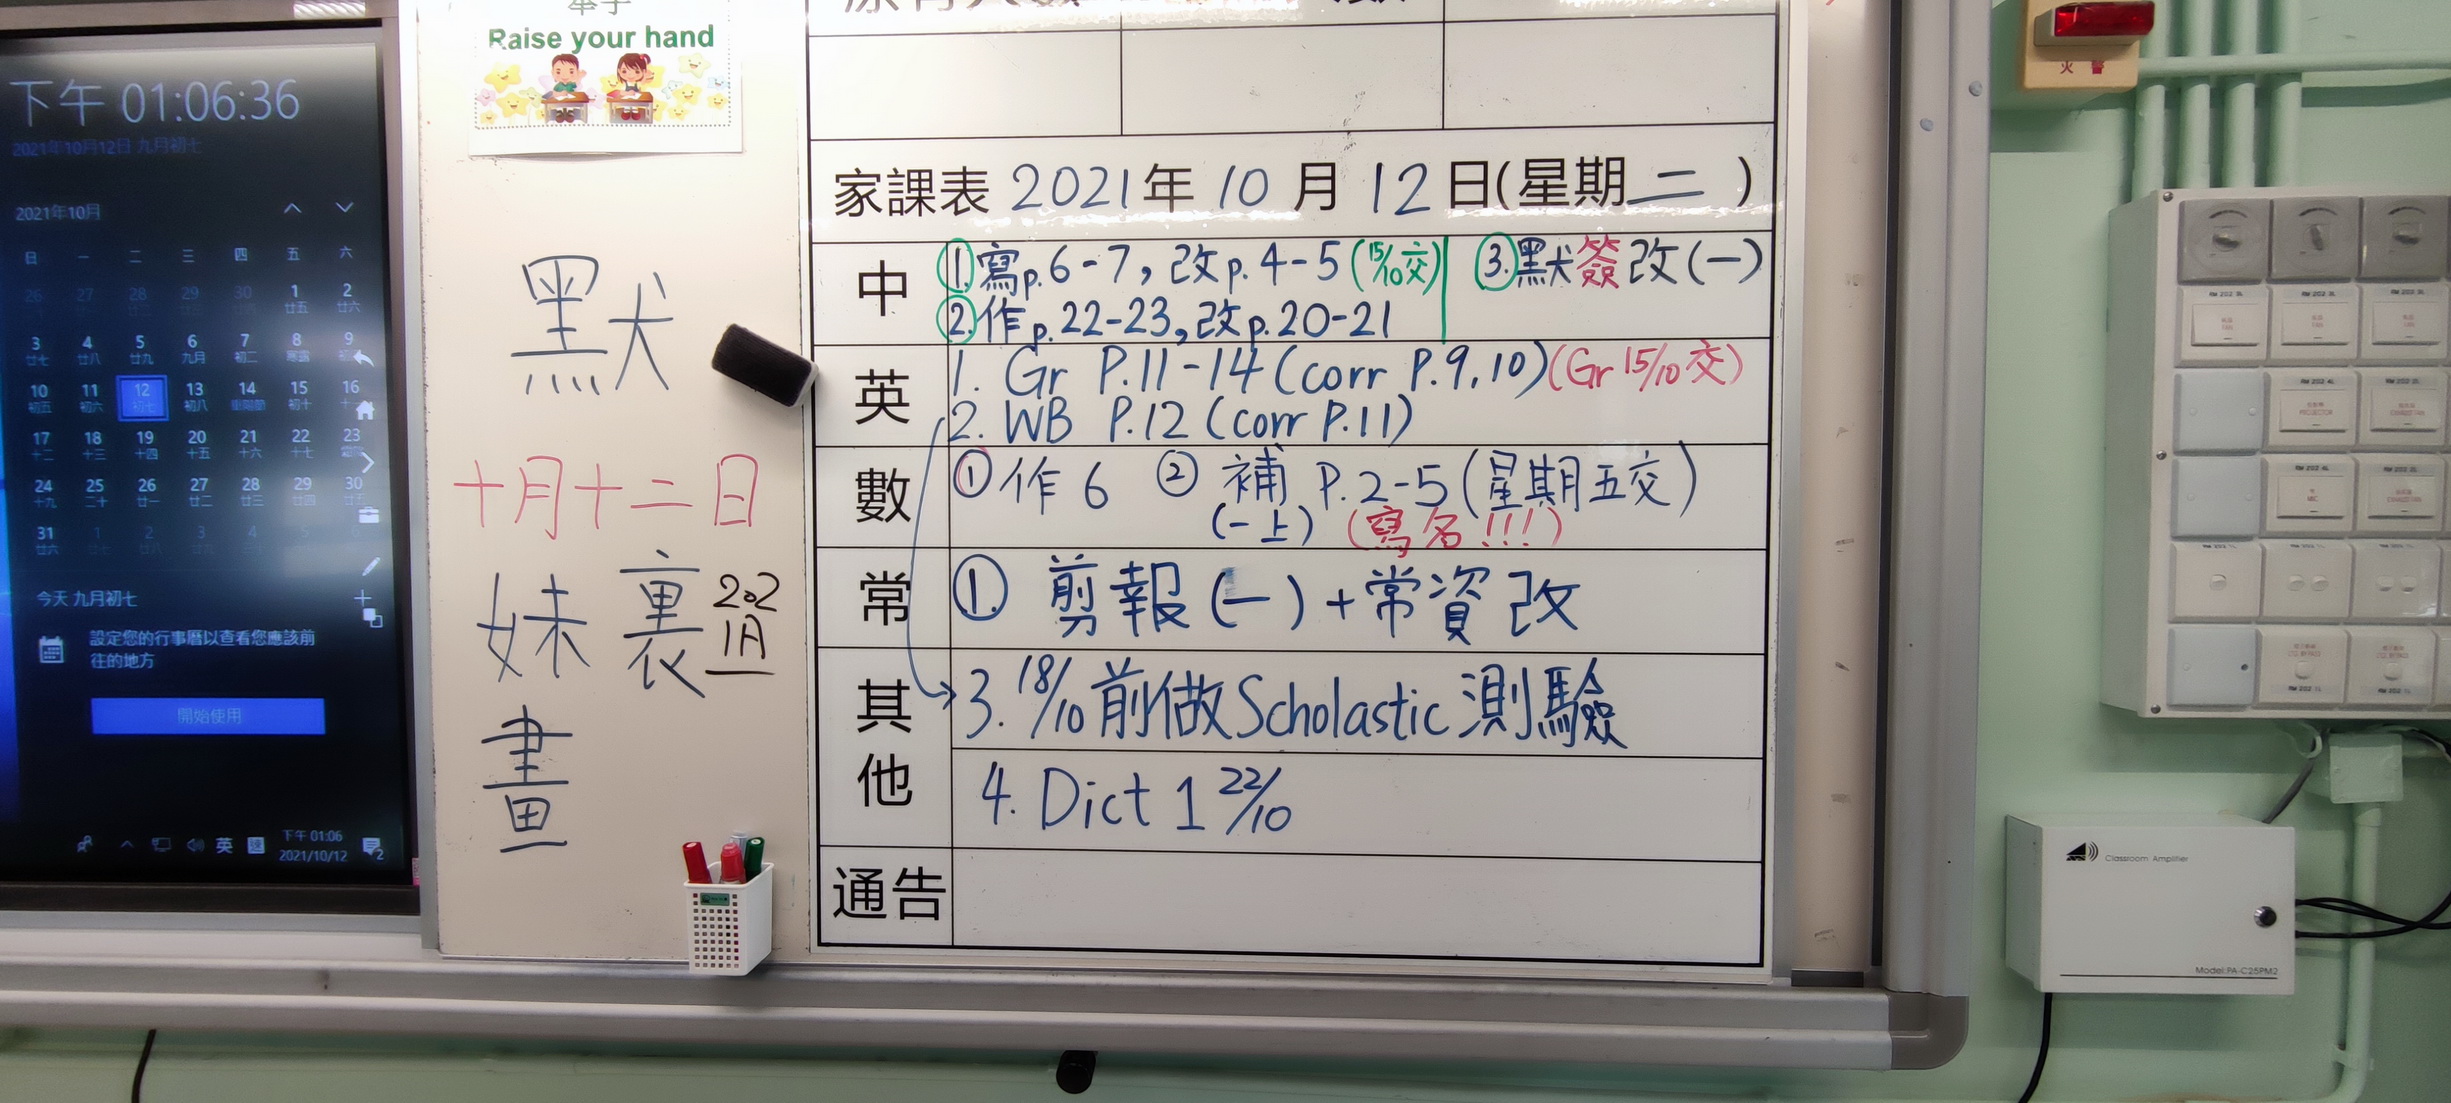 Raise your hand
下午 01:06:36
2021年10月12日 九月初七
2021年10月
日 一 二 三 四 五 六
26 27 28 29 30 1 2
廿五 廿六
3 4 5 6 7 8 9
廿七 廿八 廿九 九月 初二 寒露
10 11 12 13 14 15 16
初五 初六 初七 初八 重陽節 初十
17 18 19 20 21 22 23
十二 十三 十四 十五 十六 十七
24 25 26 27 28 29 30
十九 二十 廿一 廿二 廿三 廿四
31 1 2 3 4
廿六
今天 九月初七
設定您的行事曆以查看您應該前
往的地方
開始使用
英
下午 01:06
2021/10/12
2
默
十月十二日
妹 裏
202
1A
畫
家課表 2021年 10 月 12 日(星期二)
中
①寫p.6-7, 改p.4-5 (15/10交) ③默簽改(一)
②作p.22-23, 改p.20-21
英
1. Gr P.11-14 (corr P.9,10) (Gr 15/10 交)
2. WB P.12 (corr P.11)
數
① 作 6 ② 補 P.2-5 (星期五交)
(一上) (寫名!!!)
常
① 剪報(一)+常資改
其他
3. 18/10 前做Scholastic 測驗
4. Dict 1 22/10
通告
火 警
Classroom Amplifier
Model:PA-C25PM2